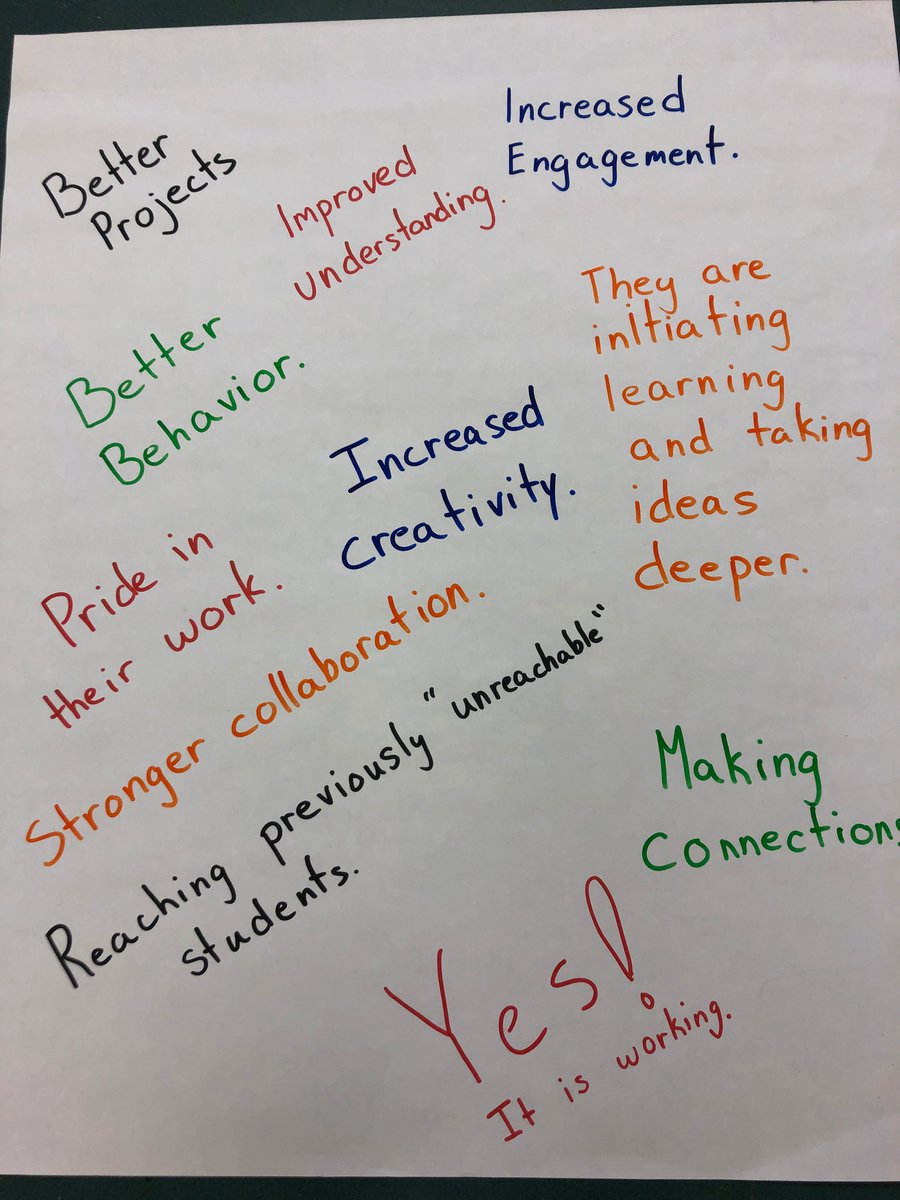 Better
Projects
Improved
understanding.
Increased
Engagement.
Better
Behavior.
Increased
creativity.
They are
initiating
learning
and taking
ideas
deeper.
Pride in
their work.
Stronger collaboration.
Reaching previously "unreachable"
students.
Making
Connections
Yes!
It is working.